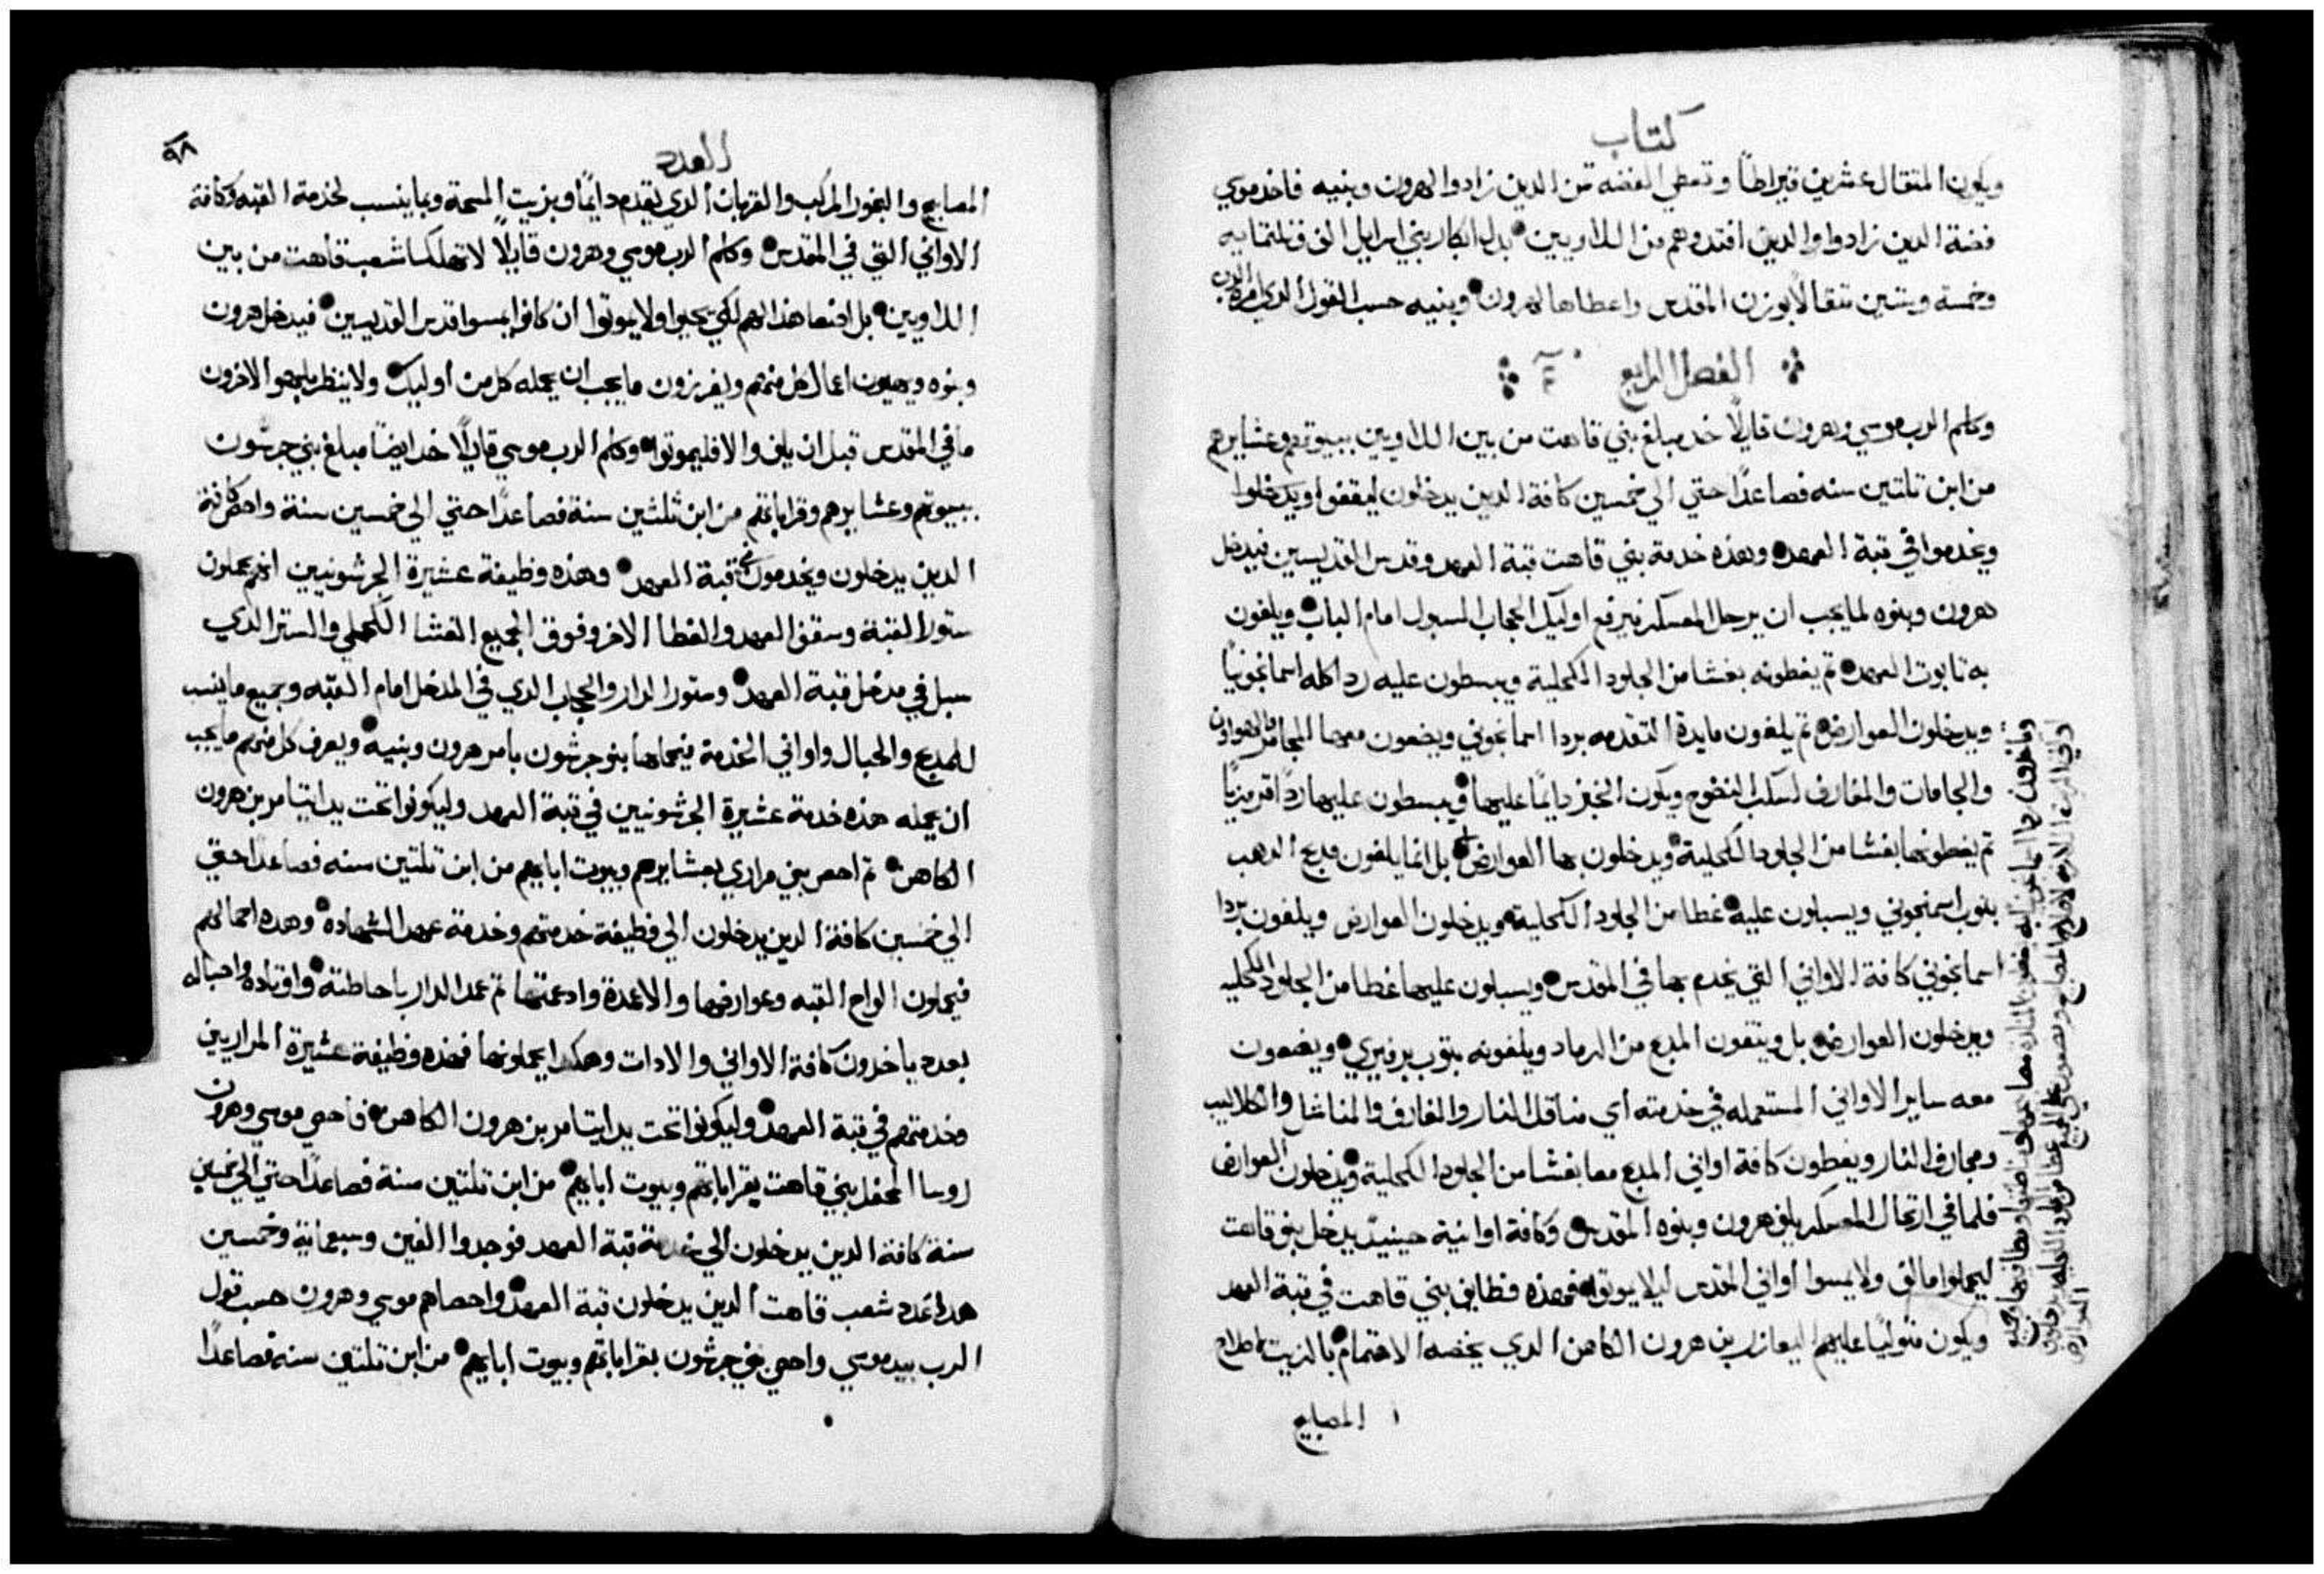 كتاب
ويكون المتقال عشرين قيراطاً وتعطي الفضه تمن الدين زادوا لهرون وبنيه فاخد موسي
فضة الدين زادوا والدين افتدوهم من اللاويين بدل ابكار بني اسرايل الف وتلتمايه
وخمسة وستين متقالاً بوزن المقدس واعطاها لهرون وبنيه حسب القول الدي امره الرب
الفصل الرابع
وكلم الرب موسي وهرون قايلاً خد مبلغ بني قاهت من بين اللاويين ببيوتهم وعشايرهم
من ابن تلتين سنه فصاعداً حتي الي خمسين كافة الدين يدخلون ليقفوا ويدخلوا
ويخدموا في قبة العهد وهذه خدمة بني قاهت قبة العهد وقدس القديسين فيدخل
هرون وبنوه لما يجب ان يرحل المعسكر فيرفع اوليك الحجاب المسبول امام الباب ويلفون
به تابوت العهد تم يغطونه بغشا من الجلود الكحلية ويبسطون عليه ردا كله اسمانجونيا
ويدخلون العوارض تم يلفون مايدة التقدمه بردا اسمانجوني ويضعون معها المجامر والهواون
والجامات والمغارف لسكب النضوح ويكون الخبز دايمًا عليها ويبسطون عليها رداً قرمزيًا
تم يغطونها بغشا من الجلود الكحلية ويدخلون بها العوارض بل انما يلفون مدبح الدهب
بتوب اسمنجوني ويسبلون عليه غطا من الجلود الكحلية ويدخلون العوارض ويلفون بردا
اسمانجوني كافة الاواني التي يخدم بها في المقدس ويسبلون عليها غطا من الجلود الكحليه
ويدخلون العوارض بل وينقون المدبح من الرماد ويلفونه بتوب برفيري ويضعون
معه ساير الاواني المستعمله في خدمته اي مناقل النار والمغارف والمناشل والكلاليب
ومجارف النار ويغطون كافة اواني المدبح معا بغشا من الجلود الكحلية ويدخلون العوارض
فلما في ارتحال المعسكر يلف هرون وبنوه المقدس وكافة اوانيه حينيد يدخل بنو قاهت
ليحملوا مالف ولا يمسوا اواني القدس ليلا يموتوا فهذه وظايف بني قاهت في قبة العهد
ويكون متوليًا عليهم اليعازر بن هرون الكاهن الدي يخصه الاهتمام بالزيت لاصلاح
المصابيح
العدد
٩٨
المصابيح والبخور المركب والقربان الدي يقدم دايمًا وبزيت المسحة وبما ينسب لخدمة القبه وكافة
الاواني التي في المقدس وكلم الرب موسي وهرون قايلاً لا تهلكا شعب قاهت من بين
اللاويين بل اصنعا هذا لهم لكي يحيوا ولا يموتوا ان كانوا يمسوا قدس القديسين فيدخل هرون
وبنوه ويرتبون اعمال كل منهم ويفرزون ما يجب ان يحمله كل من اوليك ولا ينظر بلمحو الاخرون
ما في المقدس قبل ان يلف والا فليموتوا وكلم الرب موسي قايلاً خد ايضاً مبلغ بني جرشون
ببيوتهم وعشايرهم وقراباتهم من ابن تلتين سنة فصاعداً حتي الي خمسين سنة واحص كافة
الدين يدخلون ويخدمون في قبة العهد وهذه وظيفة عشيرة الجرشونيين انهم يحملون
ستور القبة وسقف العهد والغطا الاخر وفوق الجميع الغشا الكحلي والستر الدي
سبل في مدخل قبة العهد وستور الدار والحجاب الدي في المدخل امام القبه وجميع ما ينسب
للمدبح والحبال واواني الخدمة فيحملها بنو جرشون بامر هرون وبنيه ويعرف كل منهم ما يجب
ان يحمله هذه خدمة عشيرة الجرشونيين في قبة العهد وليكونوا تحت يد ايتامر بن هرون
الكاهن تم احص بني مراري بعشايرهم وبيوت ابايهم من ابن تلتين سنه فصاعداً حتي
الي خمسين كافة الدين يدخلون الي وظيفة خدمتهم وخدمة عهد الشهاده وهده احمالهم
فيحملون الواح القبه وعوارضها والاعمدة وادعمتها تم عمد الدار باحاطته واوتاده واحباله
بعده ياخدون كافة الاواني والادات وهكدا يحملونها فهذه وظيفة عشيرة المراريين
وخدمتهم في قبة العهد وليكونوا تحت يد ايتامر بن هرون الكاهن فاحصي موسي وهرون
روسا المحفل بني قاهت بقراباتهم وبيوت ابايهم من ابن تلتين سنة فصاعداً حتي الي خمسين
سنة كافة الدين يدخلون الي خدمة قبة العهد فوجدوا الفين وسبعماية وخمسين
هدا عدد شعب قاهت الدين يدخلون قبة العهد واحصاهم موسي وهرون حسب قول
الرب بيد موسي واحصي بني جرشون بقراباتهم وبيوت ابايهم من ابن تلتين سنه فصاعداً